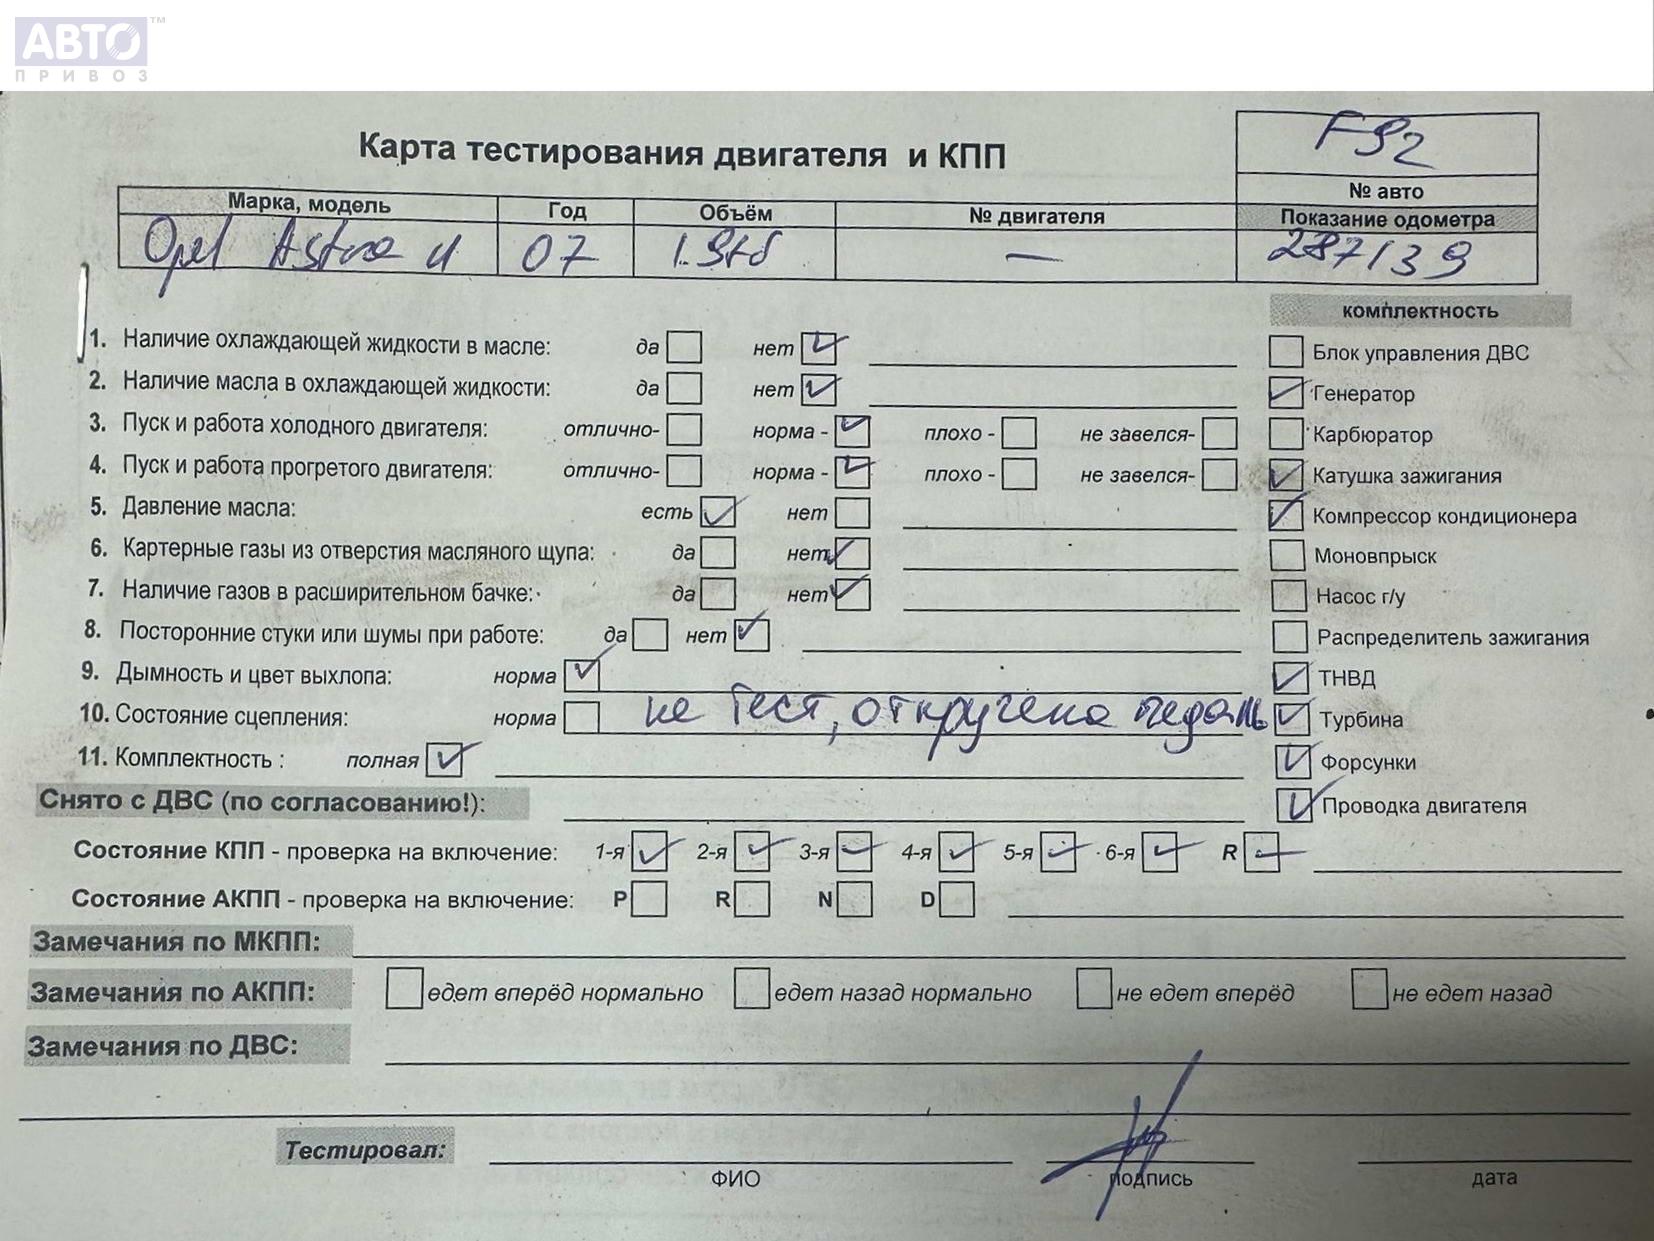 АВТО™
ПРИВОЗ
Карта тестирования двигателя и КПП
F92
№ авто
Марка, модель Год Объём № двигателя Показание одометра
Opel Astra H 07 1.9td — 287139
комплектность
1. Наличие охлаждающей жидкости в масле: да нет
Блок управления ДВС
2. Наличие масла в охлаждающей жидкости: да нет
Генератор
3. Пуск и работа холодного двигателя: отлично- норма - плохо - не завелся-
Карбюратор
4. Пуск и работа прогретого двигателя: отлично- норма - плохо - не завелся-
Катушка зажигания
5. Давление масла: есть нет
Компрессор кондиционера
6. Картерные газы из отверстия масляного щупа: да нет
Моновпрыск
7. Наличие газов в расширительном бачке: да нет
Насос г/у
8. Посторонние стуки или шумы при работе: да нет
Распределитель зажигания
9. Дымность и цвет выхлопа: норма
ТНВД
10. Состояние сцепления: норма не тест, откручена педаль
Турбина
11. Комплектность : полная
Форсунки
Снято с ДВС (по согласованию!):
Проводка двигателя
Состояние КПП - проверка на включение: 1-я 2-я 3-я 4-я 5-я 6-я R
Состояние АКПП - проверка на включение: P R N D
Замечания по МКПП:
Замечания по АКПП: едет вперёд нормально едет назад нормально не едет вперёд не едет назад
Замечания по ДВС:
Тестировал:
ФИО подпись дата